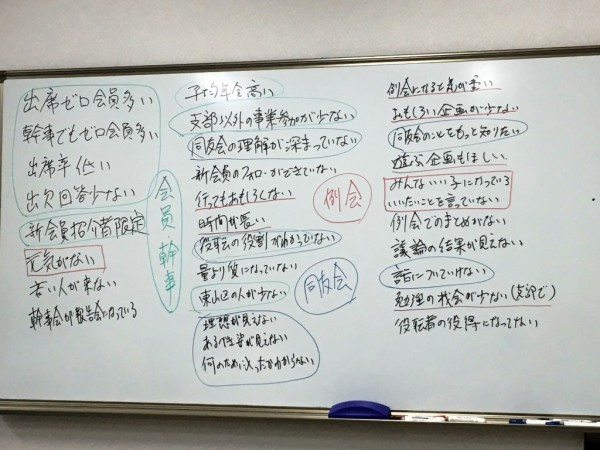 出席ゼロ会員多い
幹事でもゼロ会員多い
出席率低い
出欠回答少ない
新会員紹介者限定
元気がない
若い人が来ない
幹事会が報告会になっている
会員
幹事
平均年令高い
支部以外の事業参加が少ない
同友会の理解が深まっていない
新会員のフォローができていない
行ってもおもしろくない
時間が長い
役職の役割がわからない
量より質になっていない
東山区の人が少ない
理想が見えない
あるべき姿が見えない
何のために入ったかわからない
例会
同友会
例会になると気が重い
おもしろい企画が少ない
同友会のことをもっと知りたい
遊ぶ企画もほしい
みんないい子になっている
いいたいことを言っていない
例会でのまとめがない
議論の結果が見えない
話についていけない
勉強の機会が少ない(支部で)
役職者の役得になってない